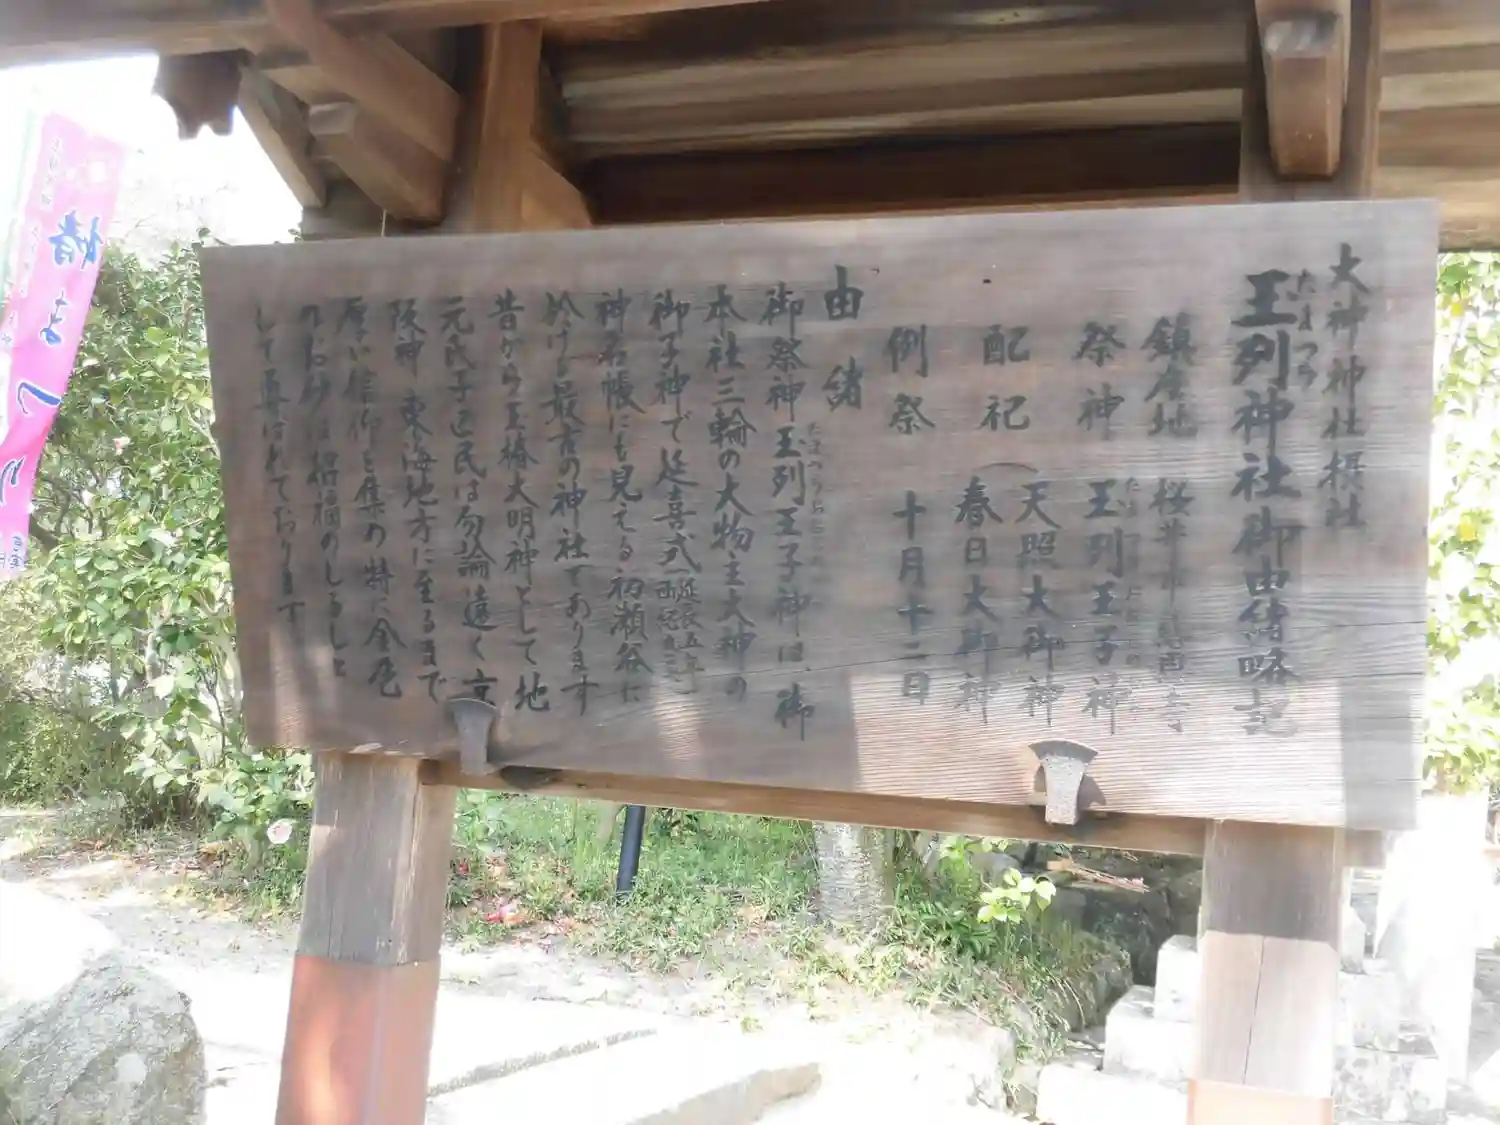 大神神社摂社
玉列神社御由緒略記
たまつら
鎮座地 桜井市慈恩寺
祭神 玉列王子神
配祀 天照大御神
春日大御神
例祭 十月十二日
由緒
御祭神玉列王子神は、御
たまつらおうじの
本社三輪の大物主大神の
御子神で延喜式(延長五年
神名帳にも見える初瀬谷に
於ける最古の神社であります
昔から玉椿大明神として地
元氏子区民は勿論遠く京
阪神 東海地方に至るまで
厚い信仰を集め 特に金色
のお砂は招福のしるしと
して尊ばれております
椿まつり